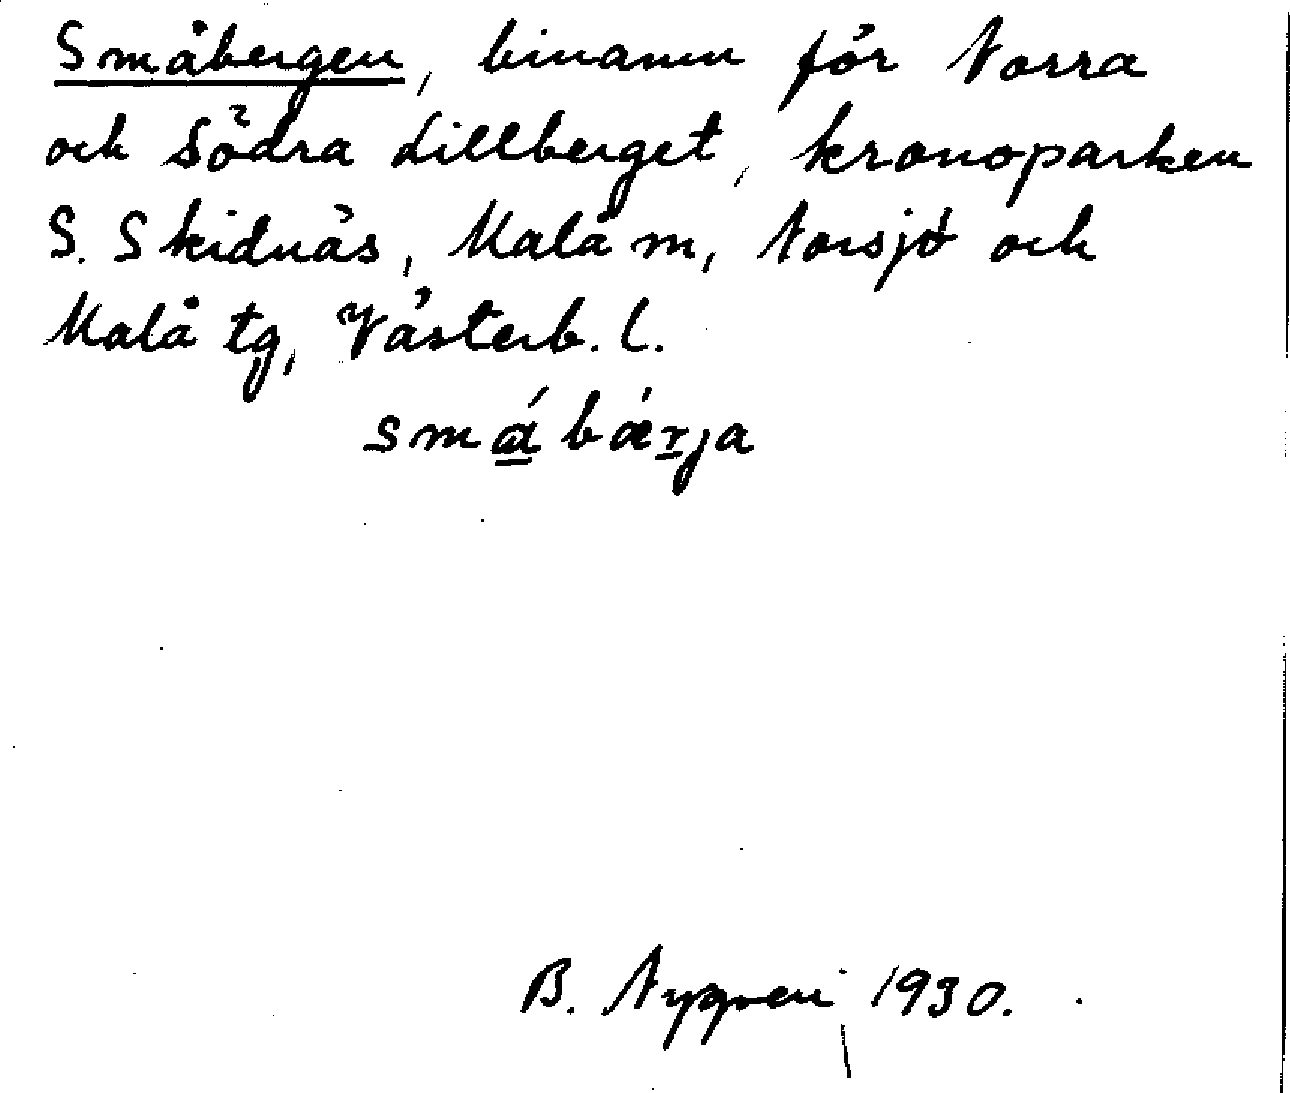 Småbergen, binamn för Norra
och Södra Lillberget, kronoparken
S. Skidnäs, Malå m, Norsjö och
Malå tg, Västerb. l.
småbærja
B. Nygren, 1930.